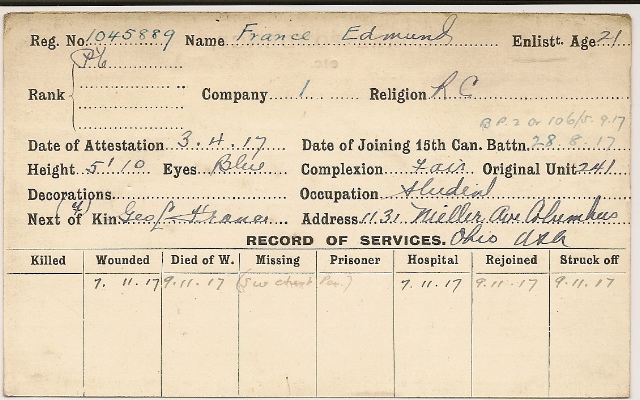 Reg. No. 1045889 Name France Edmund Enlistt. Age 21
Pte
Rank Company 1 Religion R C
B.P.2 Or 106/5.9.17
Date of Attestation 3.4.17 Date of Joining 15th Can. Battn. 28.8.17
Height 5'10 Eyes Blue Complexion Fair Original Unit 241
Decorations Occupation Student
Next of Kin Geo France Address 1131 Miller Ave Columbus
RECORD OF SERVICES. Ohio USA
Killed Wounded Died of W. Missing Prisoner Hospital Rejoined Struck off
7.11.17 9.11.17 (S.W. chest Pen.) 7.11.17 9.11.17 9.11.17